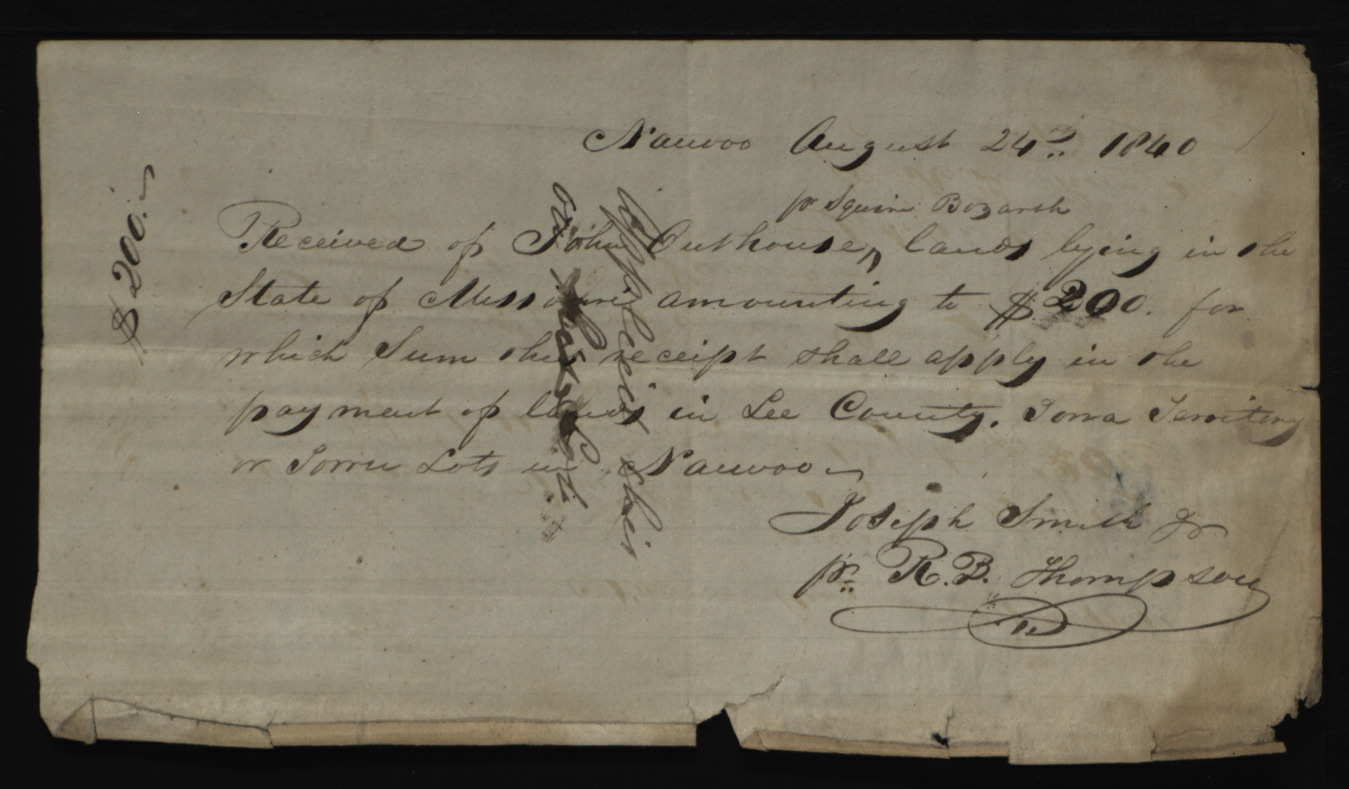 Nauvoo August 24th. 1840
pr Squire Bozarth
Received of John Outhouse, lands lying in the
State of Missouri amounting to $200. for
which Sum this receipt shall apply in the
payment of lands in Lee County. Iowa Territory
or Town Lots in Nauvoo
Joseph Smith Jr
pr. R. B. Thompson
$200.
applied this
on
Lot